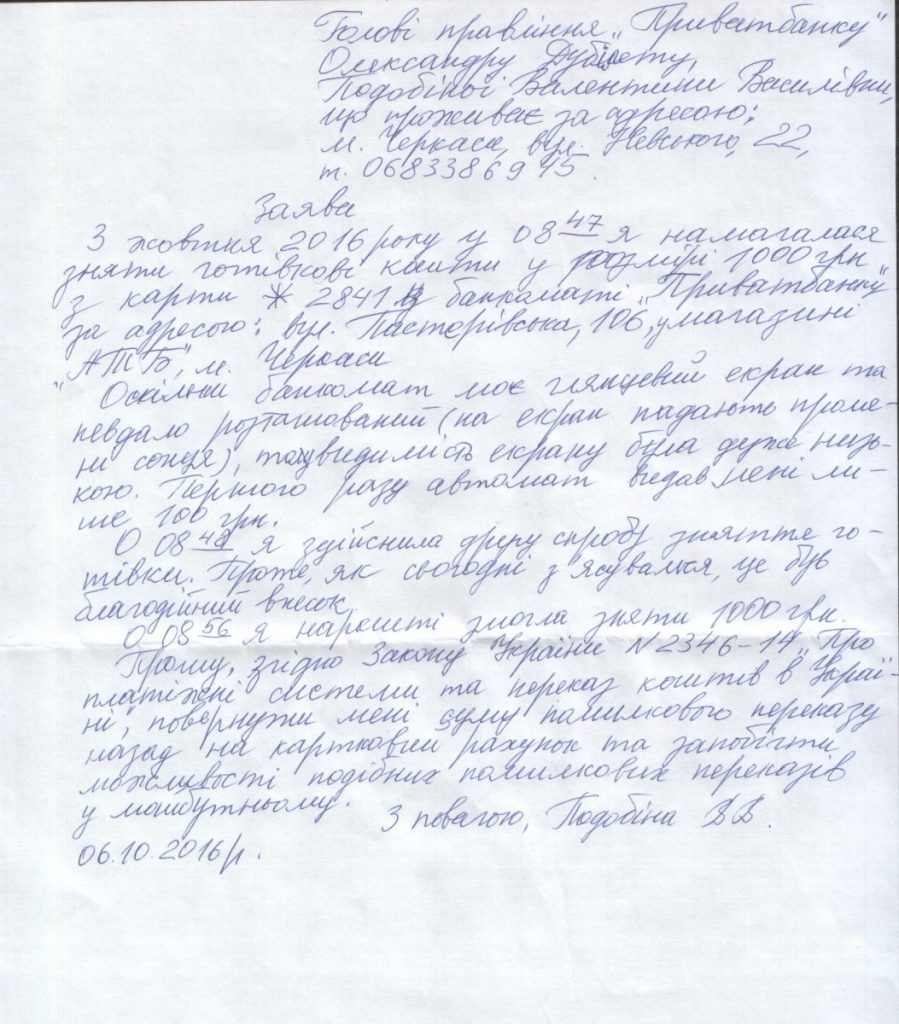 Голові правління „Приватбанку"
Олександру Дубілету,
Подобіної Валентини Василівни,
що проживає за адресою:
м. Черкаси, вул. Невського, 22,
т. 0683386945.
Заява
3 жовтня 2016 року у 08 47 я намагалася
зняти готівкові кошти у розмірі 1000 грн
з карти * 2841 в банкоматі „Приватбанку"
за адресою: вул. Пасторівська, 106, у магазині
"АТБ", м. Черкаси
Оскільки банкомат має глянцевий екран та
невдало розташований (на екран падають проме-
ні сонця), то видимість екрану була дуже низь-
кою. Першого разу автомат видав мені ли-
ше 100 грн.
О 08 48 я здійснила другу спробу зняття го-
тівки. Проте, як сьогодні з'ясувалося, це був
благодійний внесок.
О 08 56 я нарешті змогла зняти 1000 грн.
Прошу, згідно Закону України N 2346-14 „Про
платіжні системи та переказ коштів в Украї-
ні", повернути мені суму помилкового переказу
назад на картковий рахунок та запобігти
можливості подібних помилкових переказів
у майбутньому.
З повагою, Подобіна В В.
06.10.2016 р.